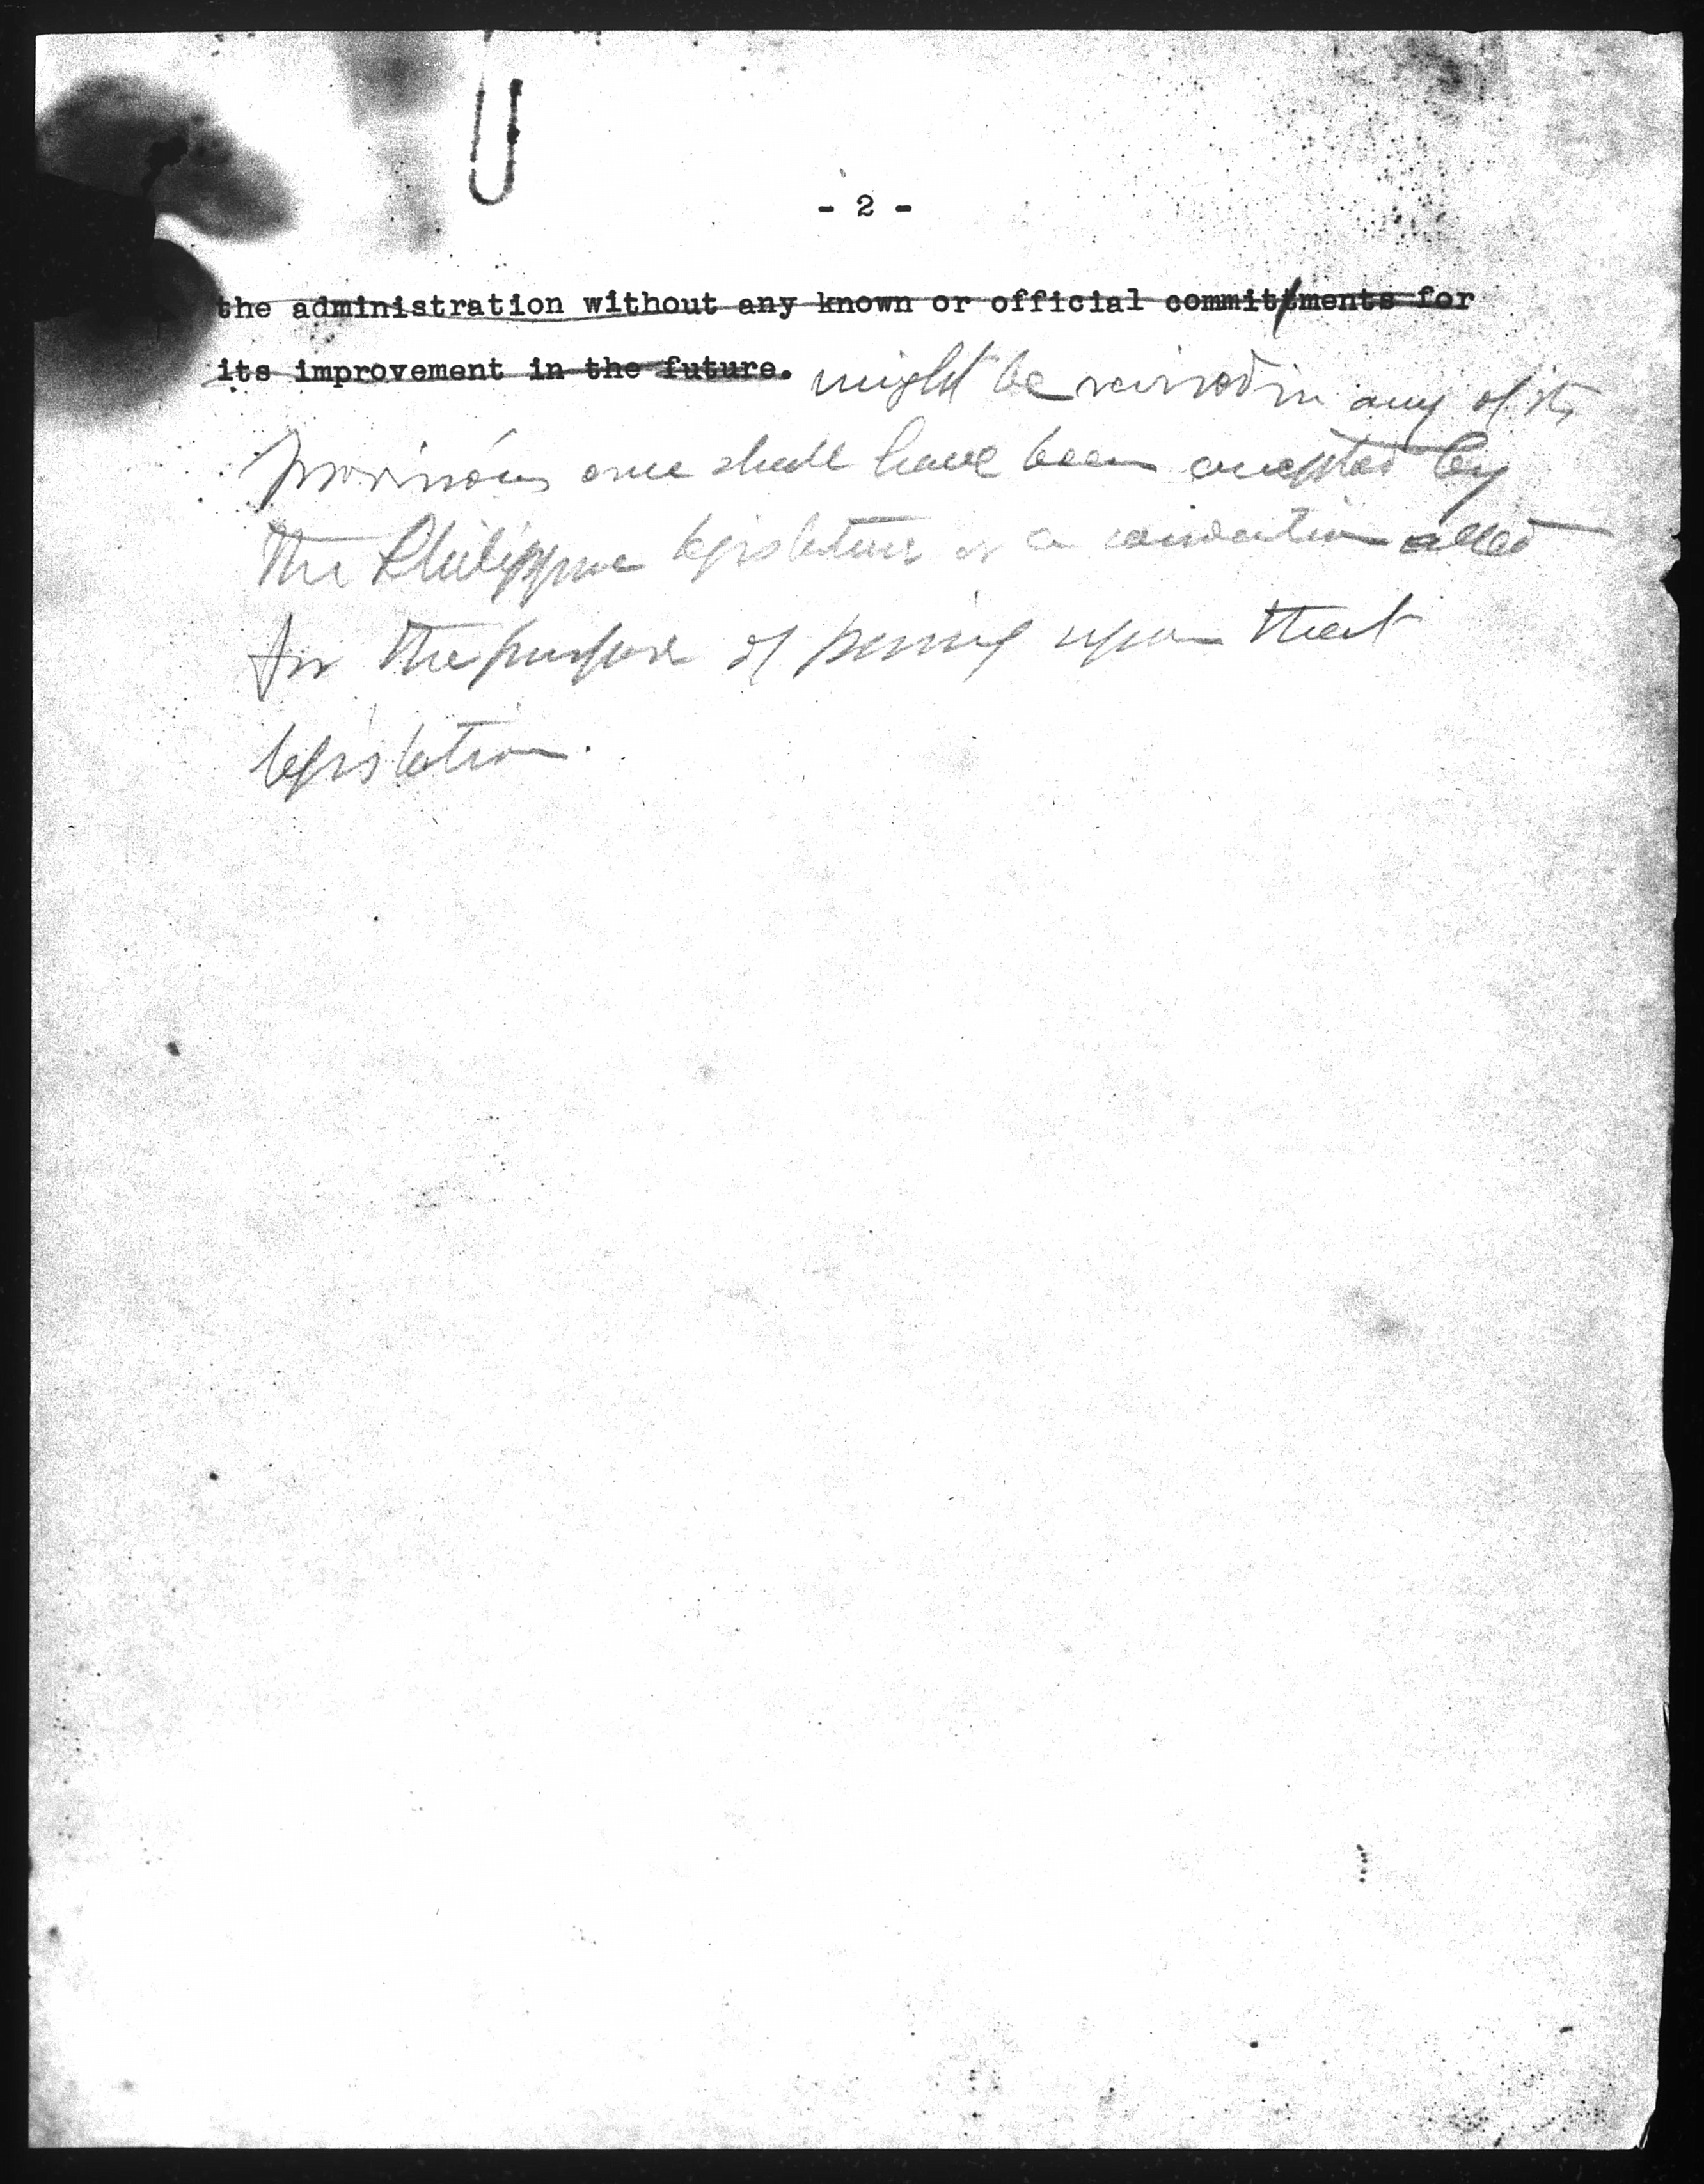 - 2 -
the administration without any known or official committments for
its improvement in the future. might be revised in any of its
provisions once shall have been accepted by
the Philippine legislature or a convention called
for the purpose of passing upon that
legislation.